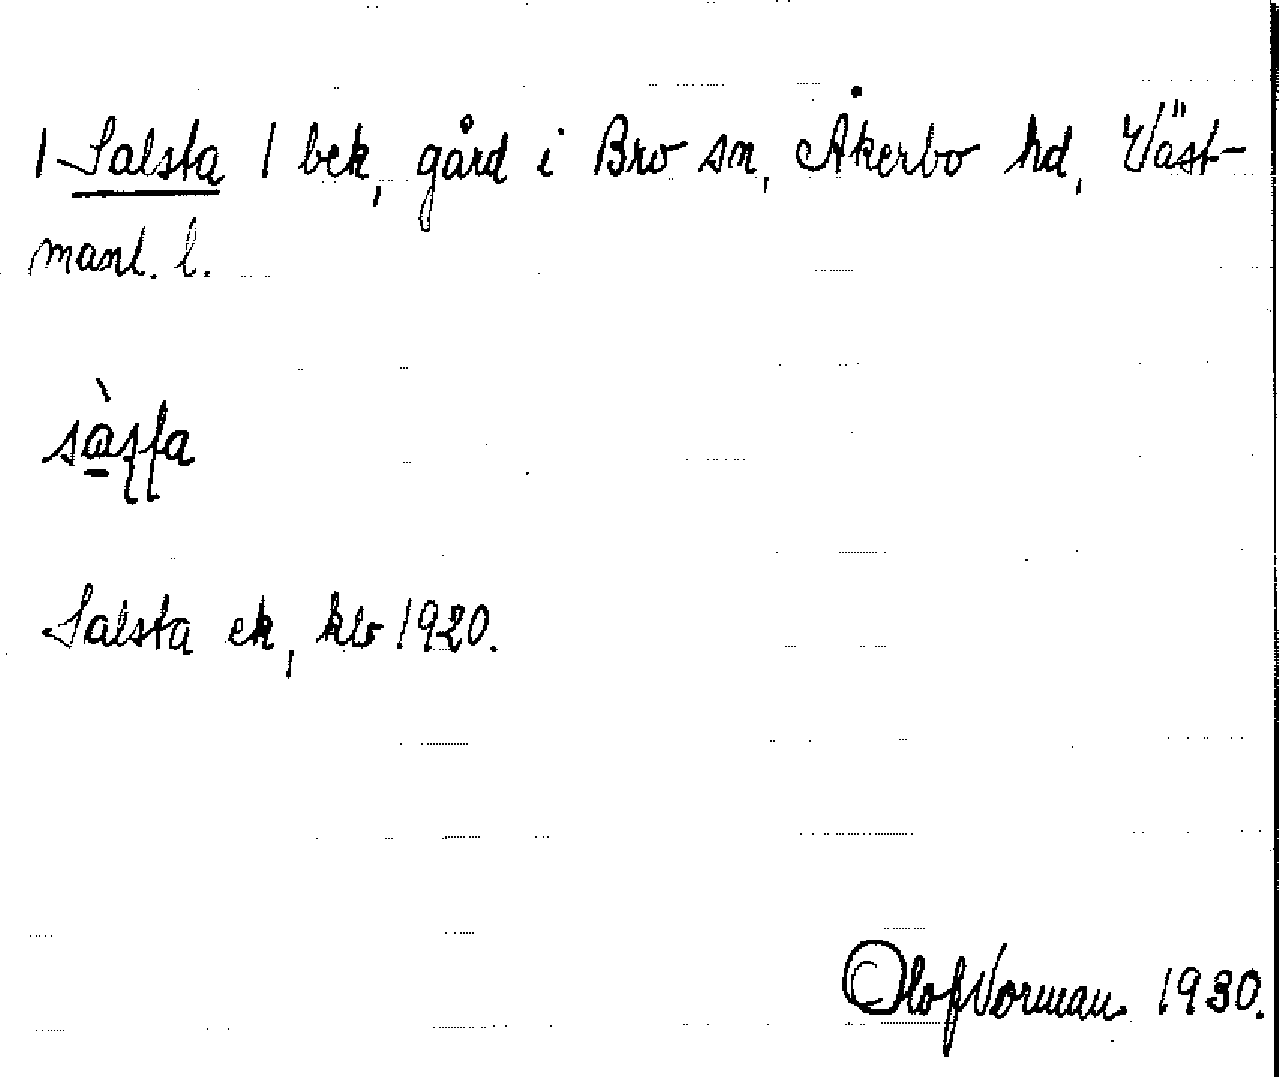 | Salsta | bek, gård i Bro sn, Åkerbo hd, Väst-
manl. l.
Salsta ek, klv 1920.
Olof Norman 1930.